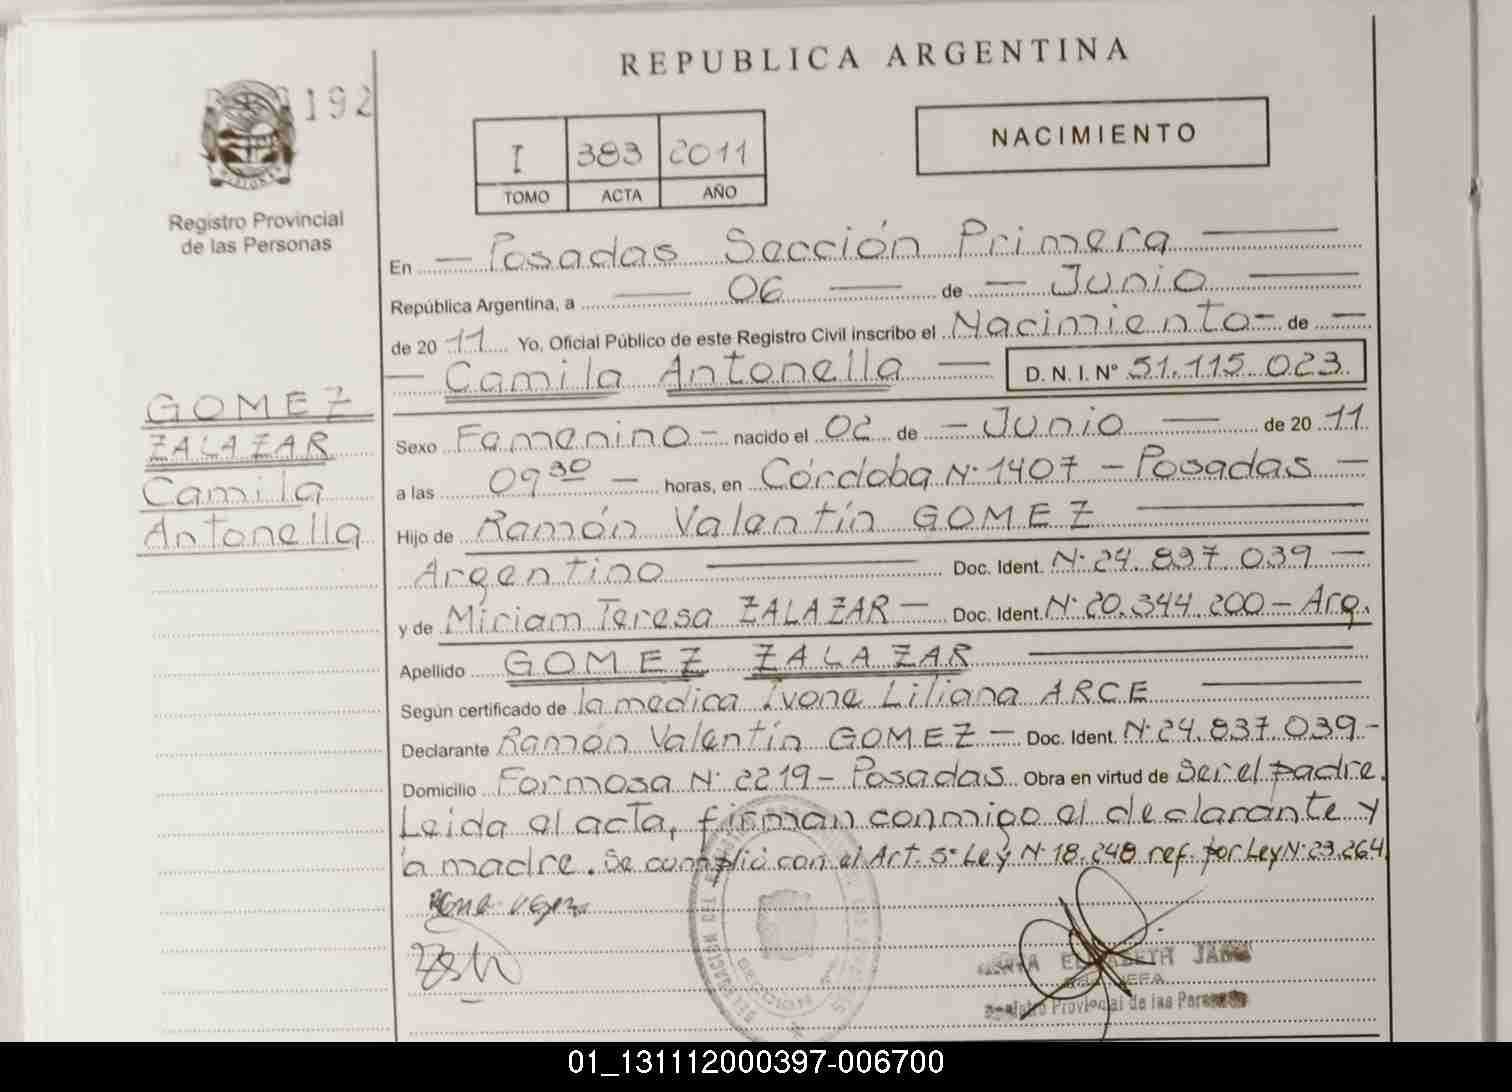 REPUBLICA ARGENTINA
192
NACIMIENTO
I 383 2011
TOMO ACTA AÑO
Registro Provincial
de las Personas
En — Posadas Sección Primera —
República Argentina, a — 06 — de — Junio —
de 20 11 Yo, Oficial Público de este Registro Civil inscribo el Nacimiento – de —
— Camila Antonella — D. N. I. N° 51.115.023
GOMEZ
ZALAZAR
Camila
Antonella
Sexo Femenino – nacido el 02 de — Junio — de 20 11
a las 09 30 — horas, en Córdoba N° 1407 – Posadas —
Hijo de Ramón Valentín GOMEZ —
Argentino — Doc. Ident. N° 24.837.039 —
y de Miriam Teresa ZALAZAR — Doc. Ident. N° 20.344.200 – Arg.
Apellido GOMEZ ZALAZAR —
Según certificado de la medica Ivone Liliana ARCE —
Declarante Ramón Valentín GOMEZ — Doc. Ident. N° 24.837.039 –
Domicilio Formosa N° 2219 – Posadas Obra en virtud de Ser el padre.
Leida el acta, firman conmigo el declarante y
la madre. Se cumplió con el Art. 5° Ley N° 18.248 ref. por Ley N° 23.264
Registro Provincial de las Personas
01_131112000397-006700